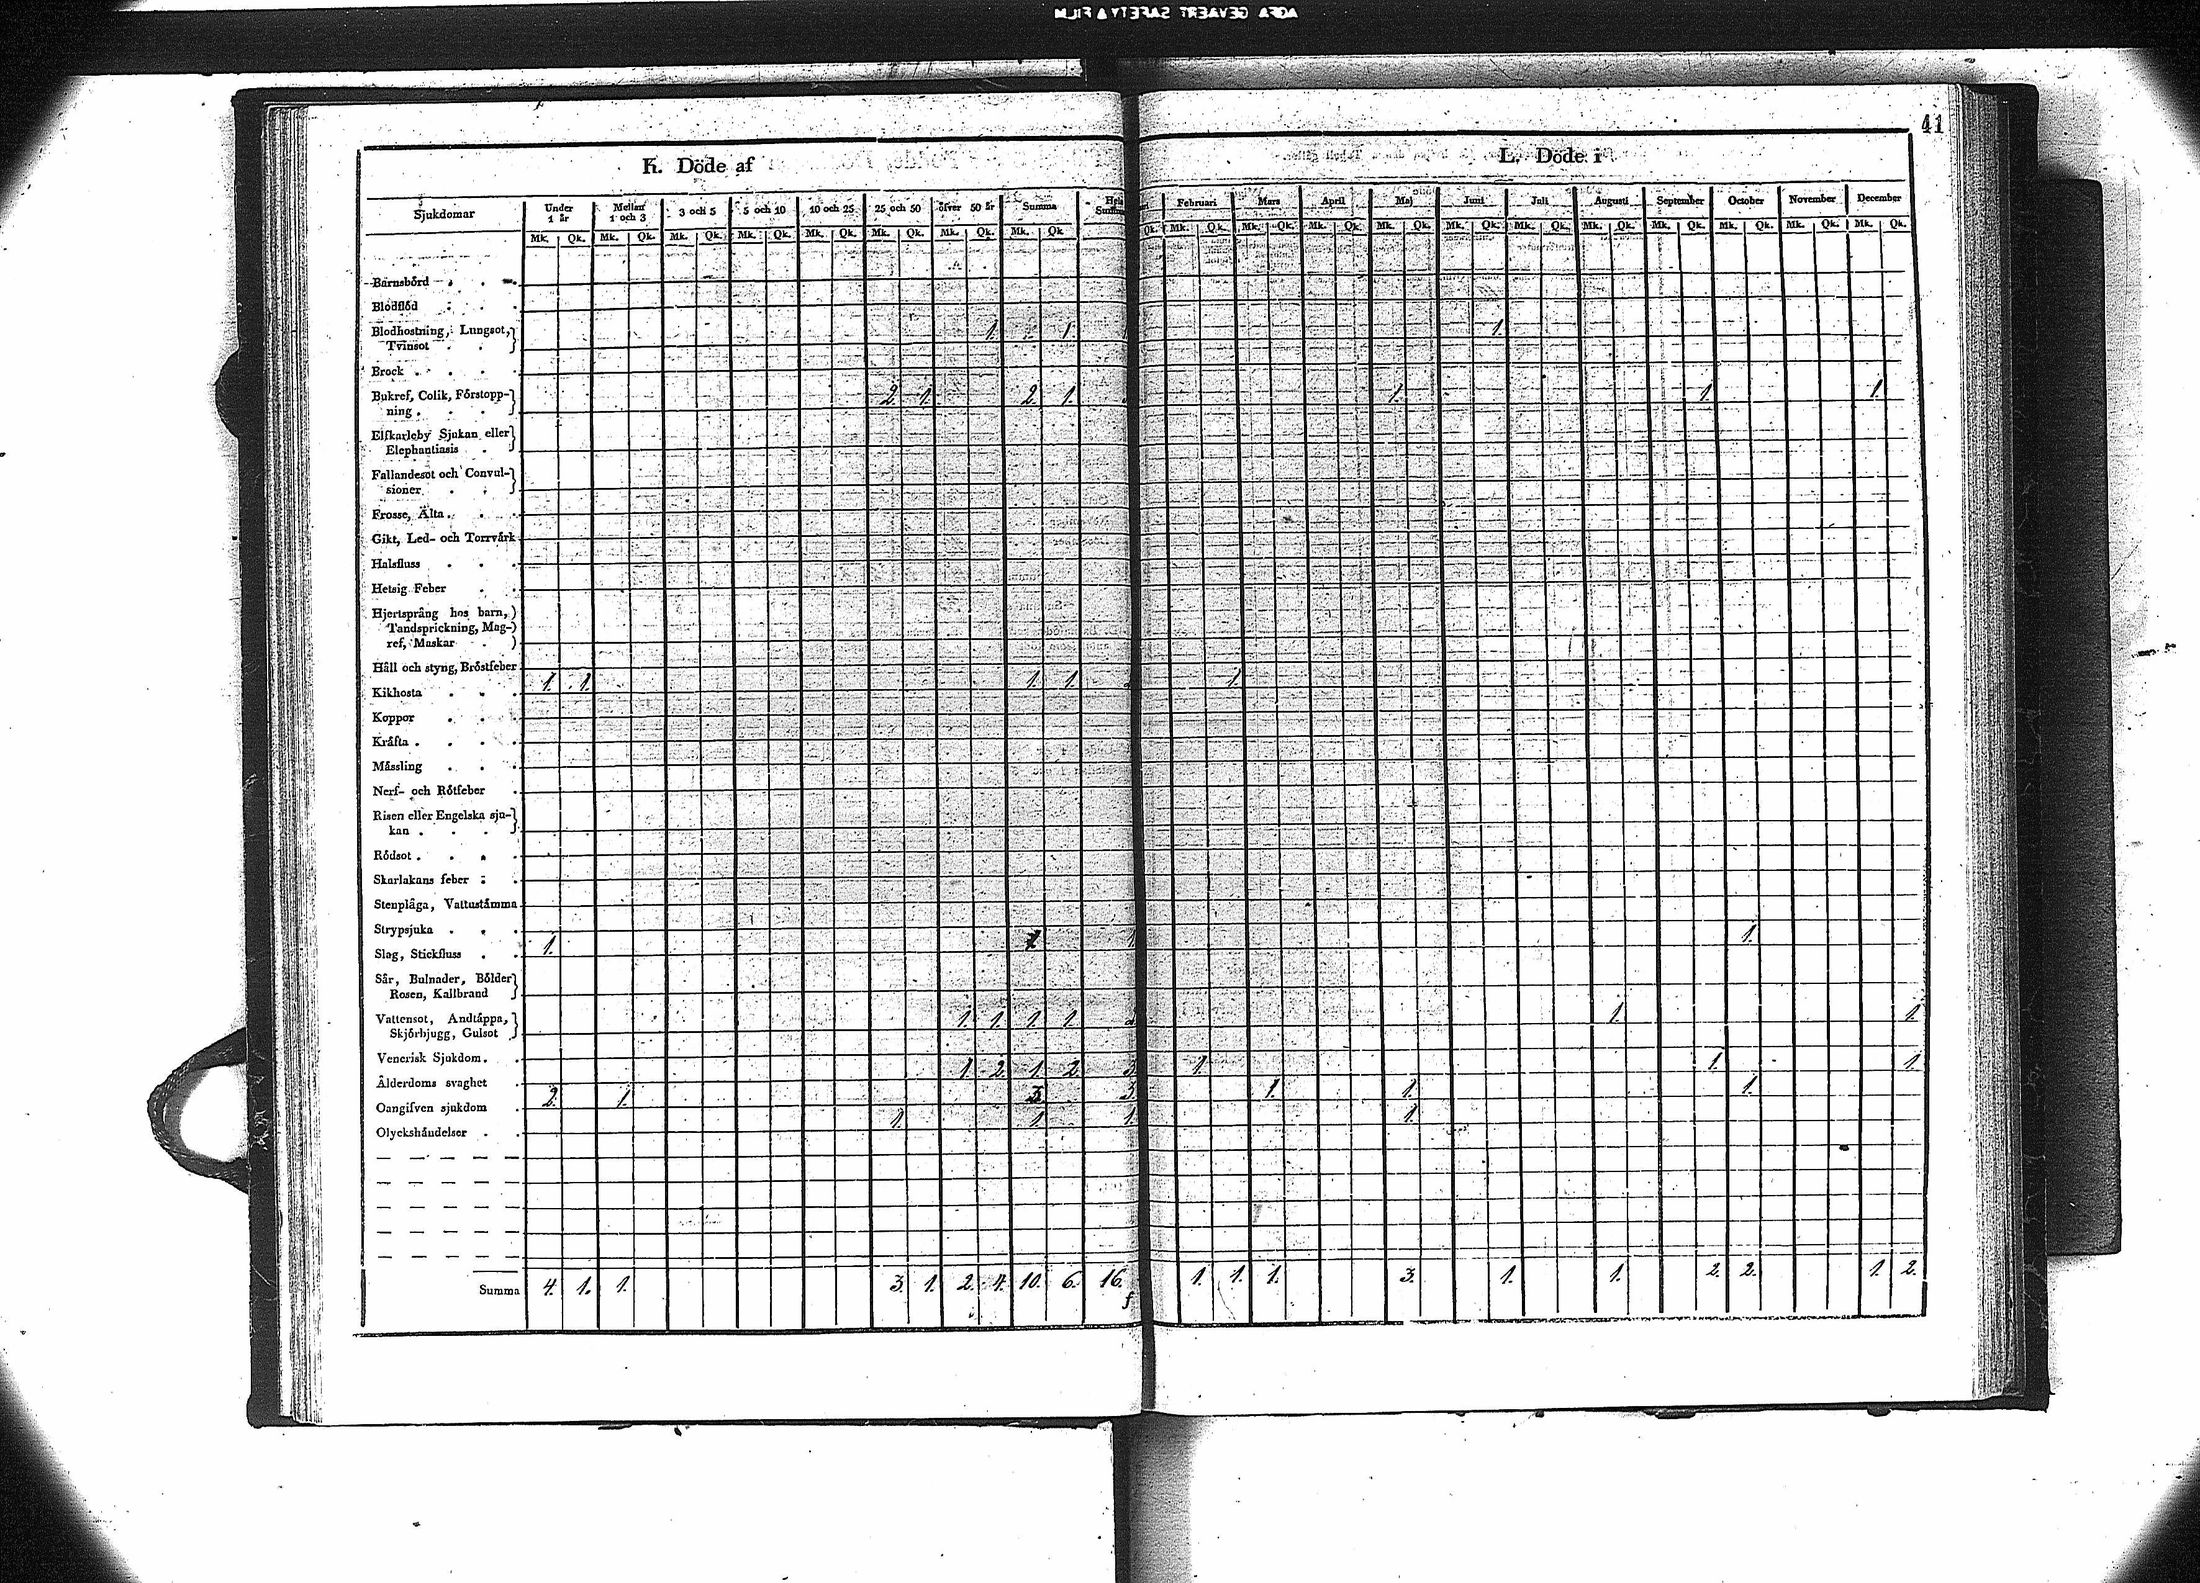 AGFA GEVAERT SAFETY ▲ FILM
41
K. Döde af
L. Döde i
Sjukdomar
Under 1 år
Mellan 1 och 3
3 och 5
5 och 10
10 och 25
25 och 50
öfver 50 år
Summa
Februari
Mars
April
Maj
Juni
Juli
Augusti
September
October
November
December
Mk. Qk. Mk. Qk. Mk. Qk. Mk. Qk. Mk. Qk. Mk. Qk. Mk. Qk. Mk. Qk. Qk. Mk. Qk. Mk. Qk. Mk. Qk. Mk. Qk. Mk. Qk. Mk. Qk. Mk. Qk. Mk. Qk. Mk. Qk. Mk. Qk. Mk. Qk.
Barnsbörd
Blodflöd
Blodhostning, Lungsot, 1. 1. 1.
Tvinsot
Brock
Bukref, Colik, Förstopp- 2. 1. 2. 1. 1. 1. 1.
ning
Elfkarleby Sjukan eller
Elephantiasis
Fallandesot och Convul-
sioner
Frosse, Älta
Gikt, Led- och Torrvärk
Halsfluss
Hetsig Feber
Hjertsprång hos barn,
Tandsprickning, Mag-
ref, Maskar
Håll och styng, Bröstfeber
Kikhosta 1. 1. 1. 1. 1.
Koppor
Kräfta
Mässling
Nerf- och Rötfeber
Risen eller Engelska sju-
kan
Rödsot
Skarlakans feber
Stenplåga, Vattustämma
Strypsjuka
Slag, Stickfluss 1. 1. 1. 1.
Sår, Bulnader, Bölder
Rosen, Kallbrand
Vattensot, Andtäppa, 1. 1. 1. 1. 1. 1.
Skjörbjugg, Gulsot
Venerisk Sjukdom
Ålderdoms svaghet 1. 2. 1. 2. 3. 1. 1. 1.
Oangifven sjukdom 2. 1. 3. 3. 1. 1. 1.
Olyckshändelser 1. 1. 1. 1.
Summa 4. 1. 1. 3. 1. 2. 4. 10. 6. 16. 1. 1. 1. 3. 1. 1. 2. 2. 1. 2.